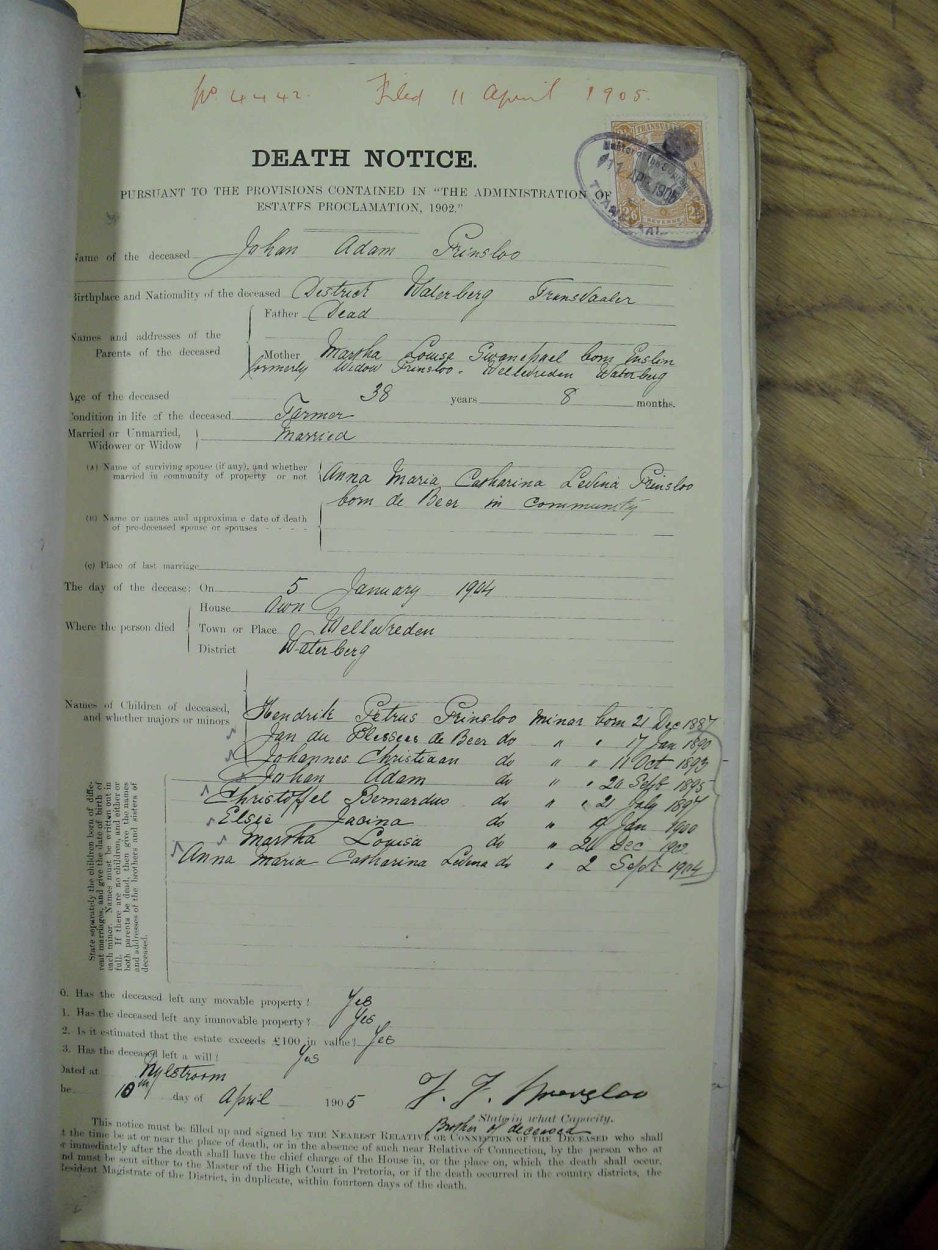 No. 4442. Filed 11 April 1905.
TRANSVAAL
2/6 REVENUE 2/6
DEATH NOTICE.
PURSUANT TO THE PROVISIONS CONTAINED IN "THE ADMINISTRATION OF
ESTATES PROCLAMATION, 1902."
Name of the deceased Johan Adam Prinsloo
Birthplace and Nationality of the deceased District Waterberg Transvaaler
Names and addresses of the Parents of the deceased
Father Dead
Mother Martha Louisa Swanepael born Enslin
formerly Widow Prinsloo - Wellvreden Waterberg
Age of the deceased 38 years 8 months.
Condition in life of the deceased Farmer
Married or Unmarried, Widower or Widow Married
(A) Name of surviving spouse (if any), and whether
married in community of property or not
Anna Maria Catharina Levina Prinsloo
born de Beer in community
(B) Name or names and approximate date of death
of pre-deceased spouse or spouses - - - -
(c) Place of last marriage
The day of the decease: On 5 January 1904
Where the person died
House Own
Town or Place Wellvreden
District Waterberg
Names of Children of deceased,
and whether majors or minors
Hendrik Petrus Prinsloo Minor born 21 Dec 1887
Jan du Plessies de Beer do " " 17 Jan 1890
Johannes Christiaan do " " 11 Oct 1893
Johan Adam do " " 20 Sept 1895
Christoffel Bernardus do " " 21 July 1897
Elsie Jacina do " 19 Jan 1900
Martha Louisa do " 20 Dec 1902
Anna Maria Catharina Levina do " 2 Sept 1904
State separately the children born of diffe-
rent marriages, and give the date of birth of
each minor. Names must be written out in
full. If there are no children, and either or
both parents be dead, then give the names
and addresses of the brothers and sisters of
deceased.
0. Has the deceased left any movable property? Yes
1. Has the deceased left any immovable property? Yes
2. Is it estimated that the estate exceeds £100 in value? Yes
3. Has the deceased left a will? Yes
Dated at Nylstroom
10th day of April 1905
State in what Capacity.
Brother of deceased
This notice must be filled up and signed by THE NEAREST RELATIVE OR CONNECTION OF THE DECEASED who shall
at the time be at or near the place of death, or in the absence of such near Relative or Connection, by the person who at
or immediately after the death shall have the chief charge of the House in, or the place on, which the death shall occur,
and must be sent either to the Master of the High Court in Pretoria, or if the death occurred in the country districts, the
Resident Magistrate of the District, in duplicate, within fourteen days of the death.